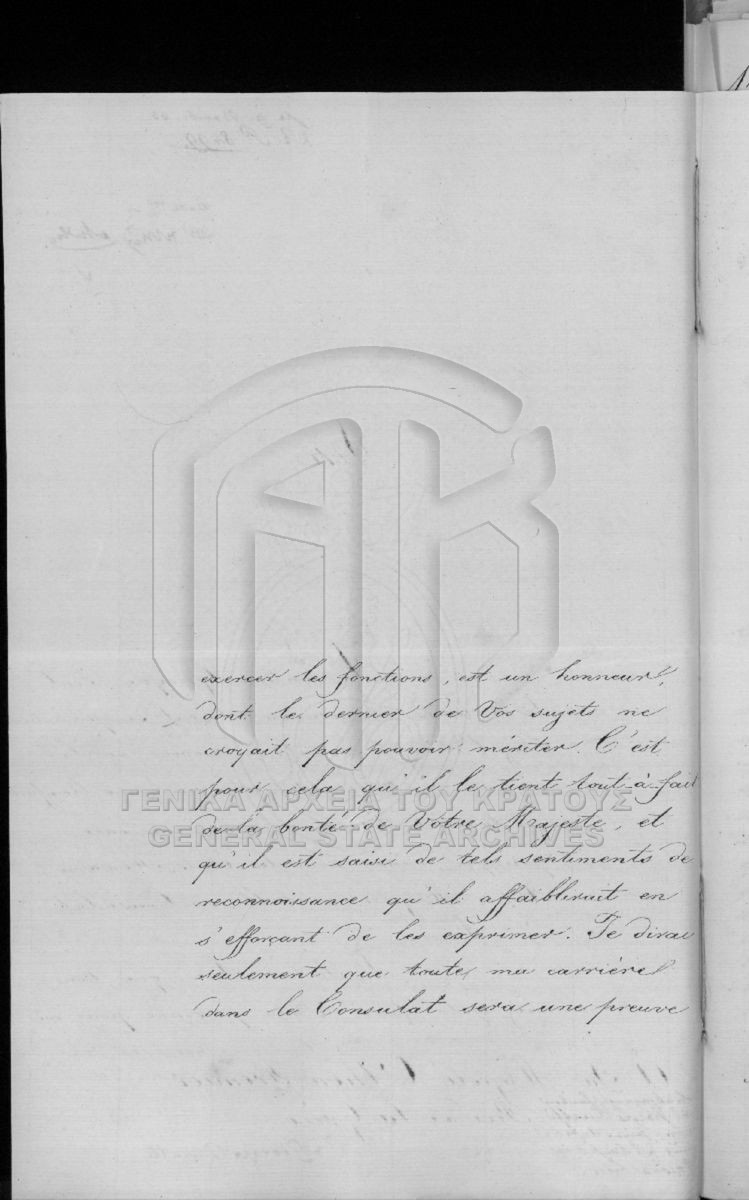 exercer les fonctions, est un honneur,
dont le dernier de Vos sujets ne
croyait pas pouvoir mériter. C'est
pour cela qu'il le tient tout à fait
ΓΕΝΙΚΑ ΑΡΧΕΙΑ ΤΟΥ ΚΡΑΤΟΥΣ
de la bonté de Votre Majesté, et
GENERAL STATE ARCHIVES
qu'il est saisi de tels sentiments de
reconnoissance qu'il affaiblirait en
s'efforçant de les exprimer. Je dirai
seulement que toute ma carrière
dans le Consulat sera une preuve